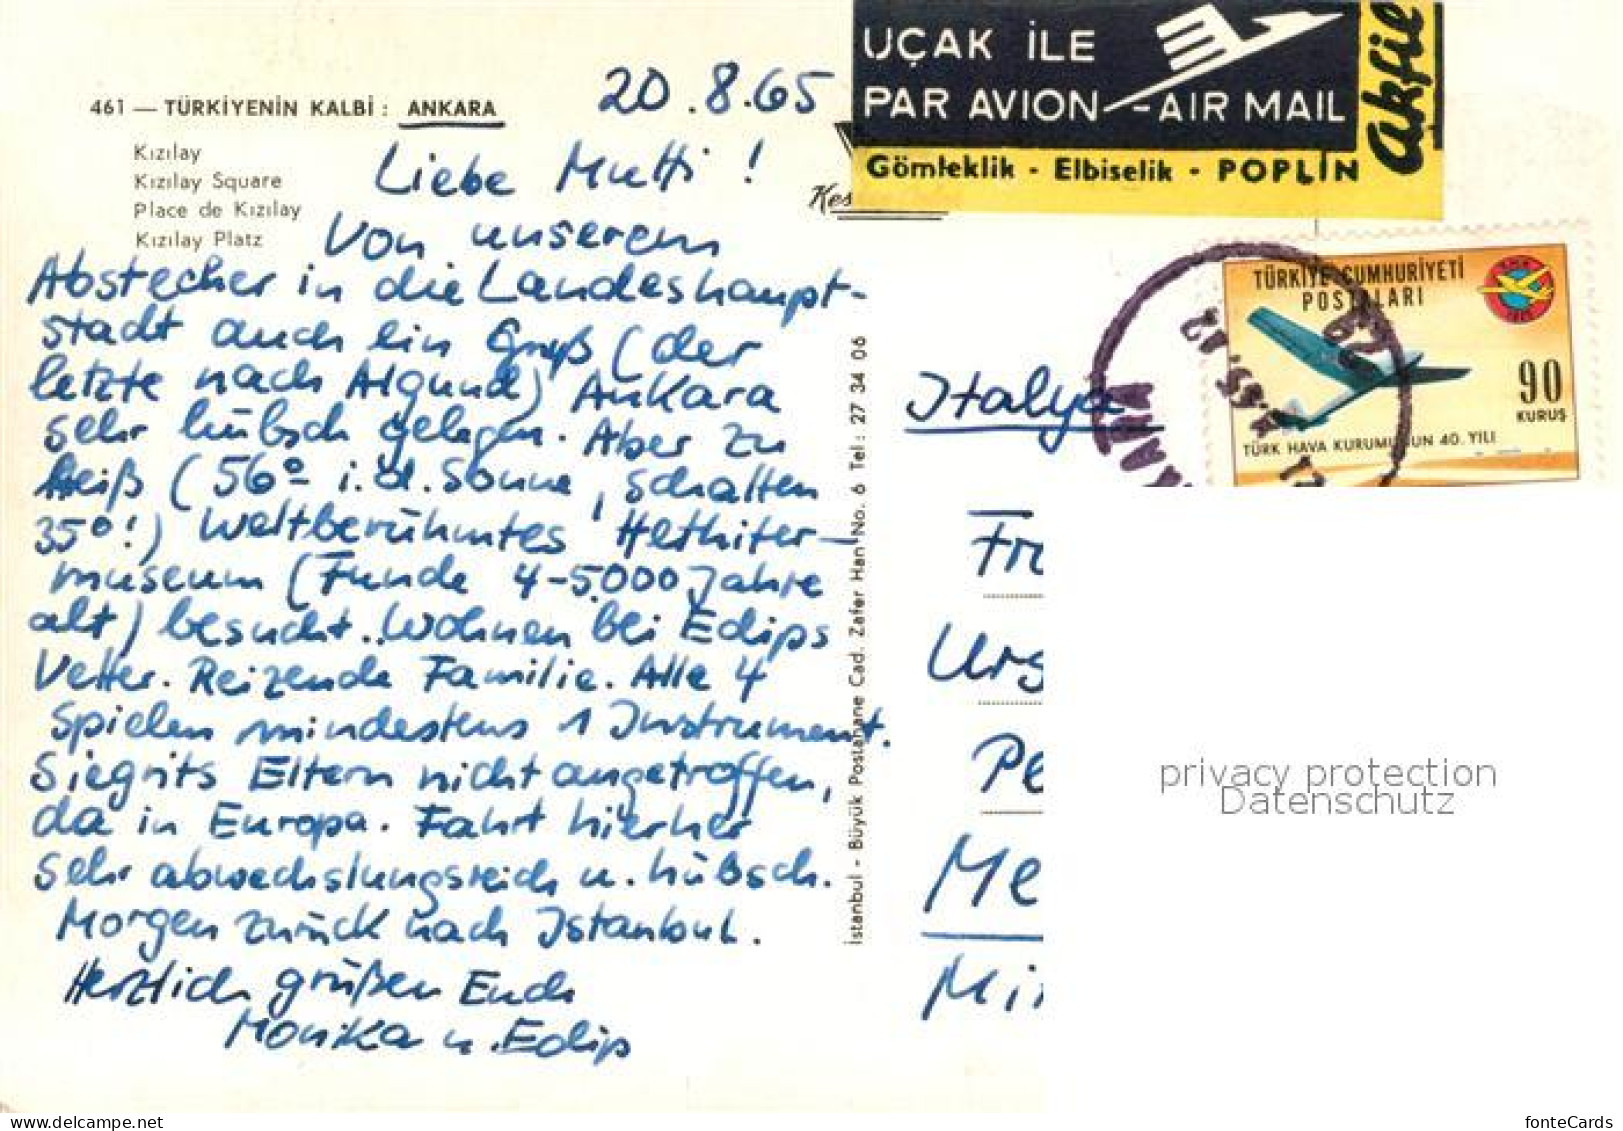 461 — TÜRKİYENİN KALBİ : ANKARA
Kızılay
Kızılay Square
Place de Kızılay
Kızılay Platz
20.8.65
Liebe Mutti !
Von unserem
Abstecher in die Landeshaupt-
stadt auch ein Gruß (der
letzte nach Algund) Ankara
sehr hübsch gelegen. Aber zu
heiß (56° i.d. Sonne, Schatten
35°!) Weltberühmtes Hethiter-
museum (Funde 4-5000 Jahre
alt) besucht. Wohnen bei Edips
Vetter. Reizende Familie. Alle 4
spielen mindestens 1 Instrument.
Siegrits Eltern nicht angetroffen,
da in Europa. Fahrt hierher
sehr abwechslungsreich u. hübsch.
Morgen zurück nach Istanbul.
Herzlich grüßen Euch
Monika u. Edip
Kes
İstanbul - Büyük Postahane Cad. Zafer Han No. 6 Tel : 27 34 06
UÇAK İLE
PAR AVION - AIR MAIL
Gömleklik - Elbiselik - POPLİN
akfil
TÜRKİYE CUMHURİYETİ
POSTALARI
90
KURUŞ
TÜRK HAVA KURUMUNUN 40. YILI
Italya
Fr
Urs
Pe
Me
Mi
privacy protection
Datenschutz
fonteCards